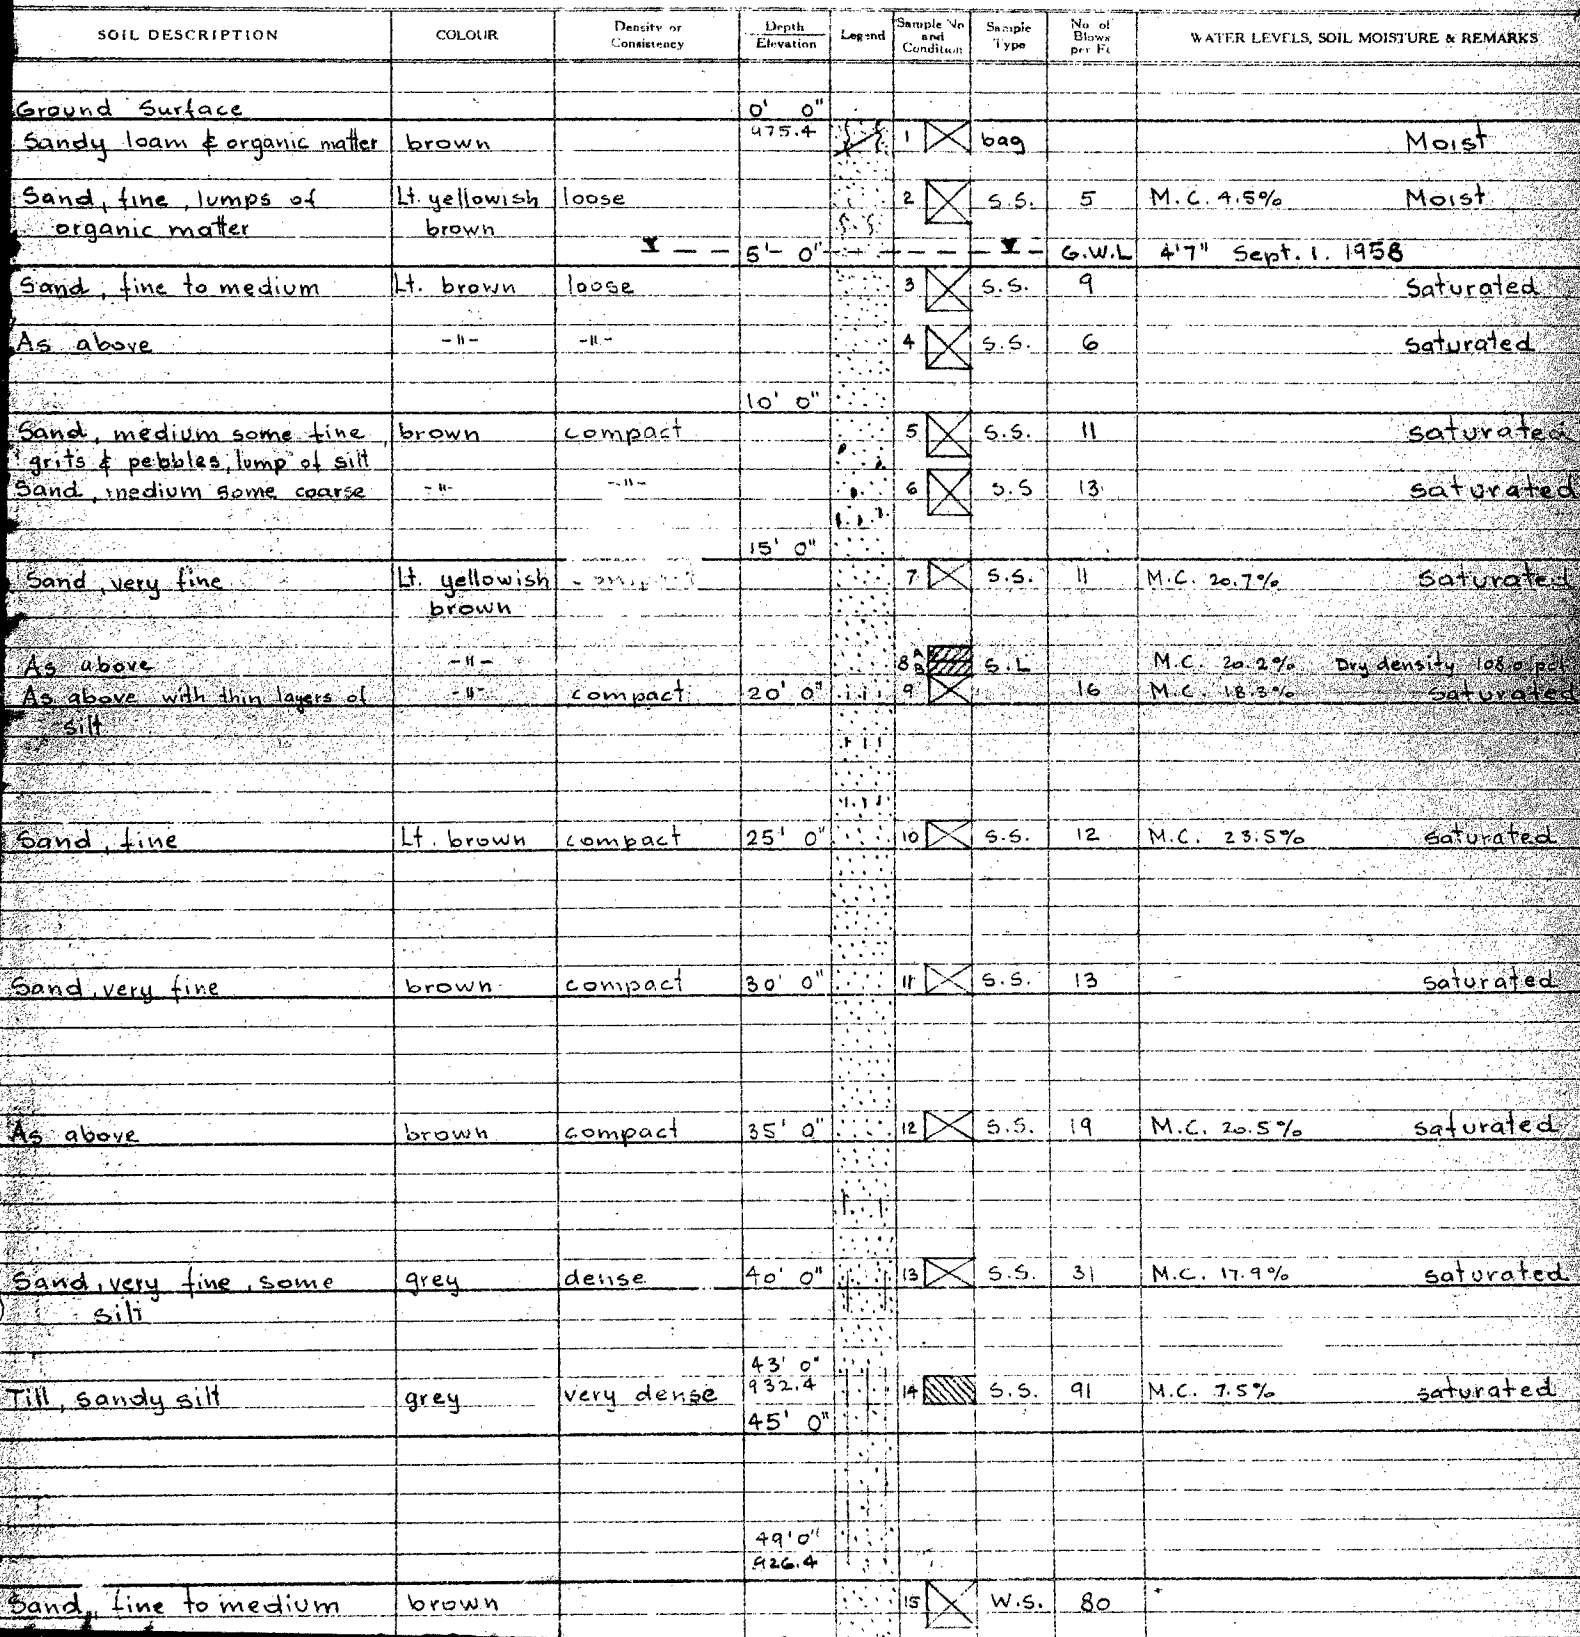 SOIL DESCRIPTION COLOUR Density or Consistency Depth Elevation Legend Sample No and Condition Sample Type No of Blows per Ft WATER LEVELS, SOIL MOISTURE & REMARKS
Ground Surface 0' 0"
975.4
Sandy loam & organic matter brown 1 bag Moist
Sand, fine, lumps of Lt. yellowish loose 2 S.S. 5 M.C. 4.5% Moist
organic matter brown
5'- 0" G.W.L 4'7" Sept. 1. 1958
Sand, fine to medium Lt. brown loose 3 S.S. 9 Saturated
As above -"- -"- 4 S.S. 6 saturated
10' 0"
Sand, medium some fine brown compact 5 S.S. 11 saturated
grits & pebbles, lump of silt
Sand, medium some coarse -"- -"- 6 S.S 13 saturated
15' 0"
Sand, very fine Lt. yellowish 7 S.S. 11 M.C. 20.7% Saturated
brown
As above -"- 8 A B S.L M.C. 20.2% Dry density 108.0 pcf
As above with thin layers of -"- compact 20' 0" 9 16 M.C. 18.3% Saturated
silt
Sand, fine Lt. brown compact 25' 0" 10 S.S. 12 M.C. 23.5% saturated
Sand, very fine brown compact 30' 0" 11 S.S. 13 saturated
As above brown compact 35' 0" 12 S.S. 19 M.C. 20.5% saturated
Sand, very fine, some grey dense 40' 0" 13 S.S. 31 M.C. 17.9% saturated
silt
43' 0"
932.4
Till, sandy silt grey very dense 14 S.S. 91 M.C. 7.5% saturated
45' 0"
49' 0"
926.4
Sand, fine to medium brown 15 W.S. 80